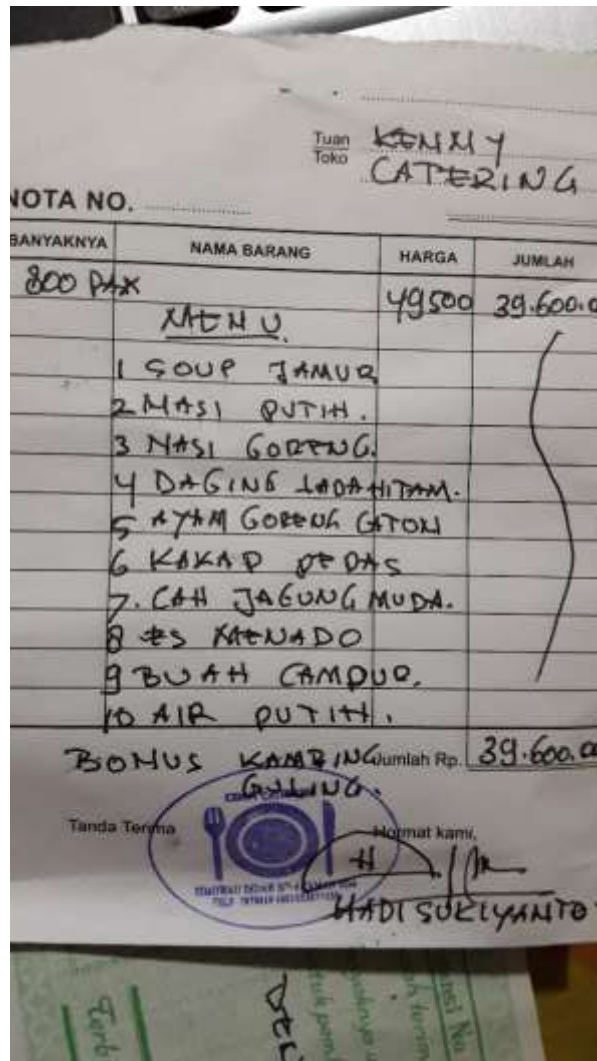 Tuan
Toko
KENNY
CATERING
NOTA NO.
BANYAKNYA NAMA BARANG HARGA JUMLAH
800 PAX 49500 39.600.0
MENU
1 SOUP JAMUR
2 NASI PUTIH.
3 NASI GORENG.
4 DAGING LADA HITAM.
5 AYAM GORENG GATON
6 KAKAP PEDAS
7. CAH JAGUNG MUDA.
8 ES MENADO
9 BUAH CAMPUR.
10 AIR PUTIH.
BONUS KAMBING GULING.
Jumlah Rp. 39.600.00
Tanda Terima
Hormat kami,
HADI SUKIYANTO